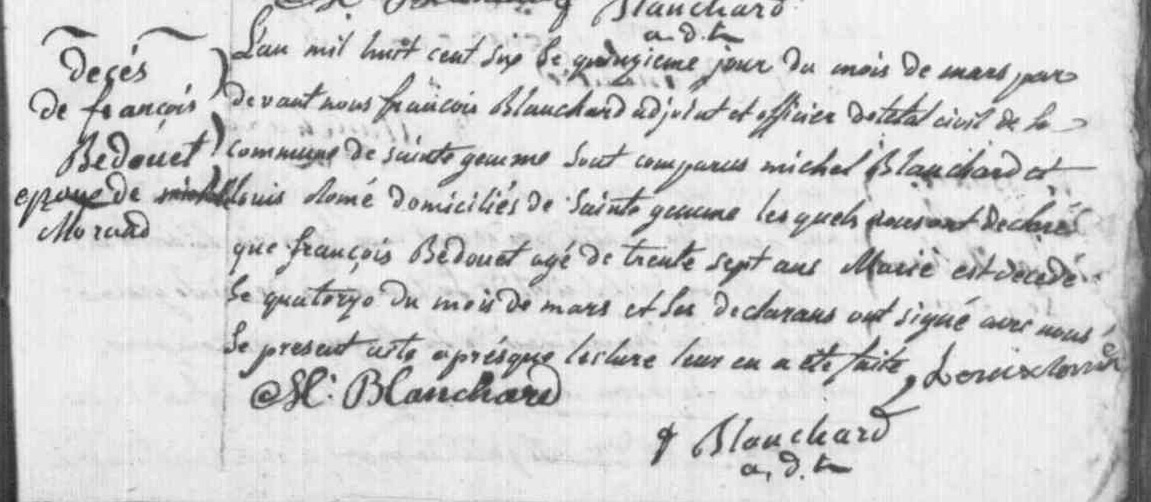 Blanchard
a. d. m
Decés
de françois
Bedouet
epoux de michel
Morand
L'an mil huit cent six le quinzieme jour du mois de mars par
devant nous françois Blanchard adjoint et officier detetat civil de la
commune de sainte gemme sont comparus michel Blanchard et
Louis domiciliés de Sainte gemme lesquels nous ont declarés
que françois Bedouet agé de trente sept ans Marié est decedé
le quatorze du mois de mars et les declarans ont signé avec nous
le present acte apres que lecture leur en a été faite Louis
M: Blanchard
f Blanchard
a. d. m